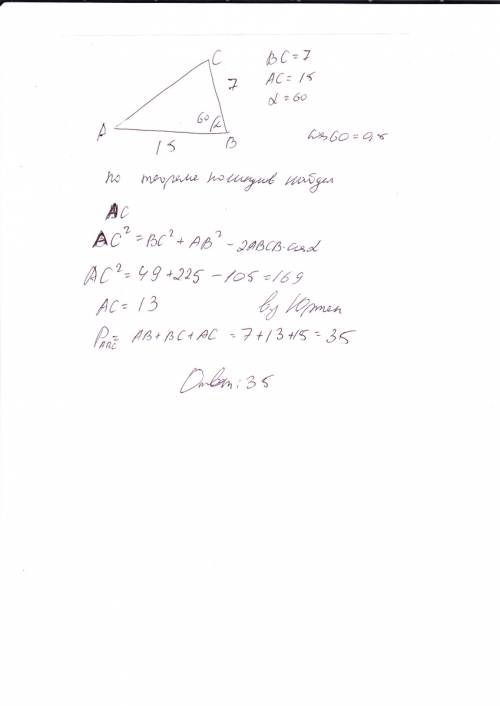 C
BC = 7
7
AC = 15
α = 60
A
60 α
15
B
cos60 = 0,5
по теореме косинусов найдем
AC
AC² = BC² + AB² - 2ABCB·cosα
AC² = 49 + 225 - 105 = 169
AC = 13
by
P ABC = AB + BC + AC = 7 + 13 + 15 = 35
Ответ: 35